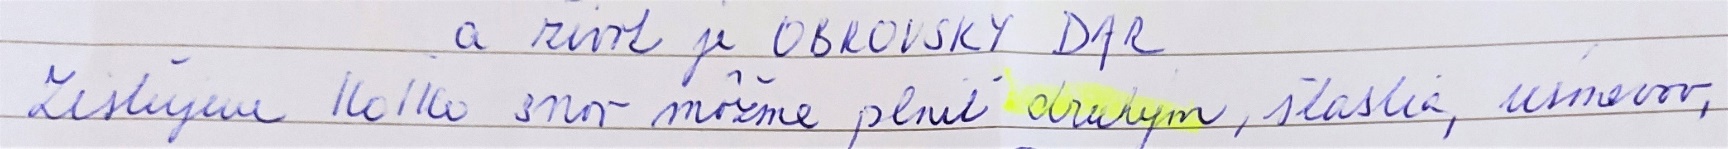 a život je OBROVSKÝ DAR
Zisťujeme koľko snov môžme plniť druhým, šťastia, úsmevov,